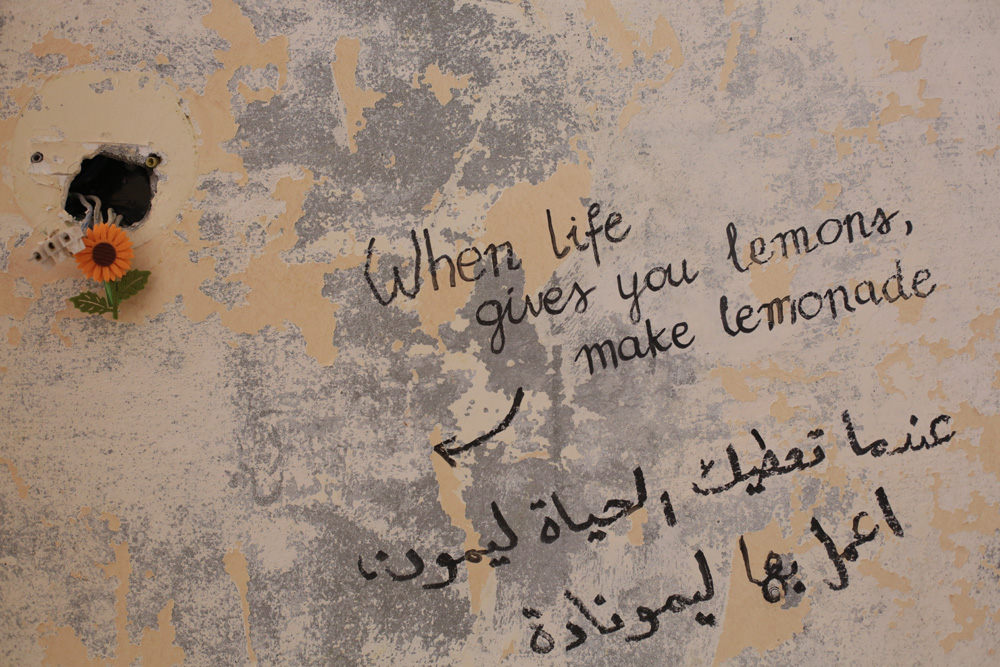 When life
gives you lemons,
make lemonade
عندما تعطيك الحياة ليمون،
اعمل بها ليمونادة